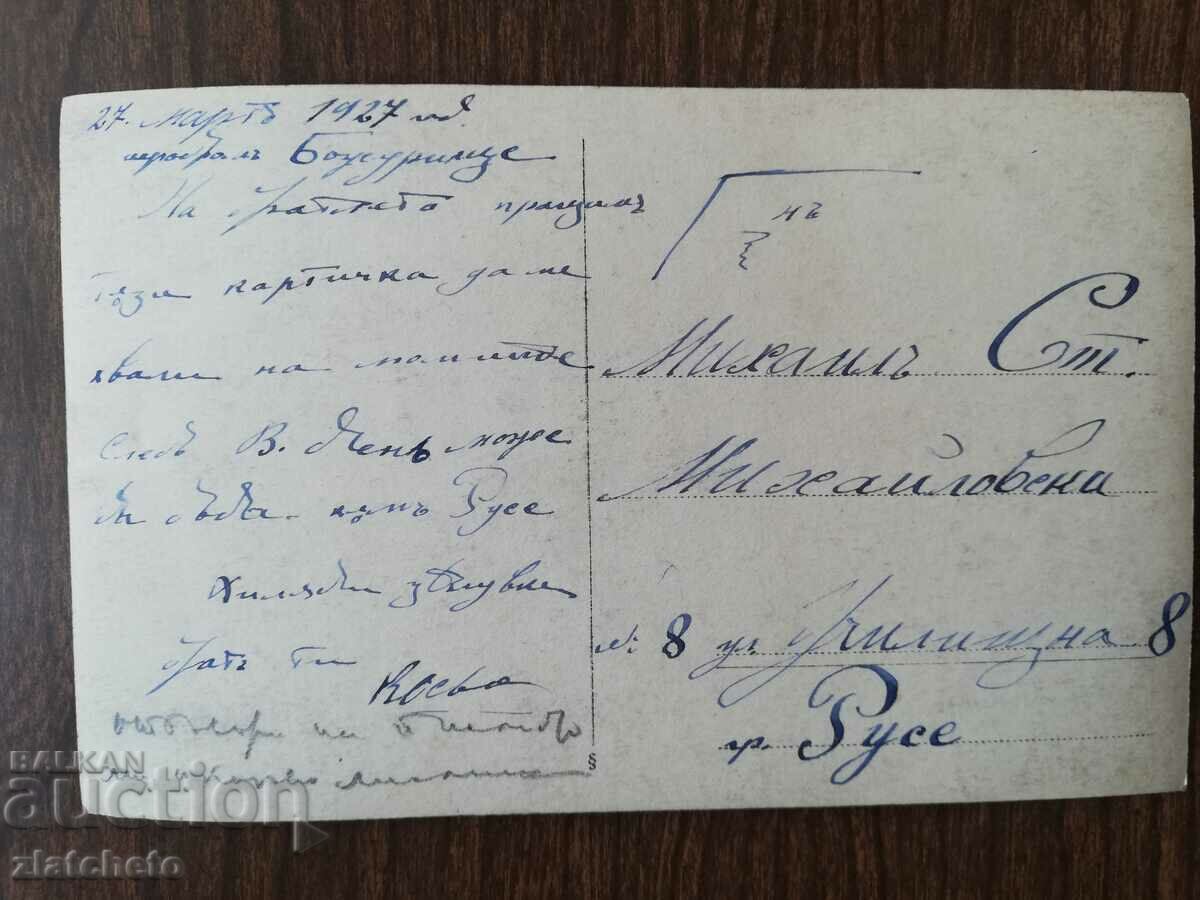 27. мартъ 1927 год.
аеродромъ Божурище
На братлето пращамъ
тѫзи картичка да ме
хвали на момите
Следъ В. день може
би бѫда къмъ Русе
Хиляди цѣлувки
Братъ ти
на
нъ
Михаилъ Ст.
Михайловски
№ 8 ул. Училищна 8
гр. Русе
§
BALKAN
auction
zlatcheto